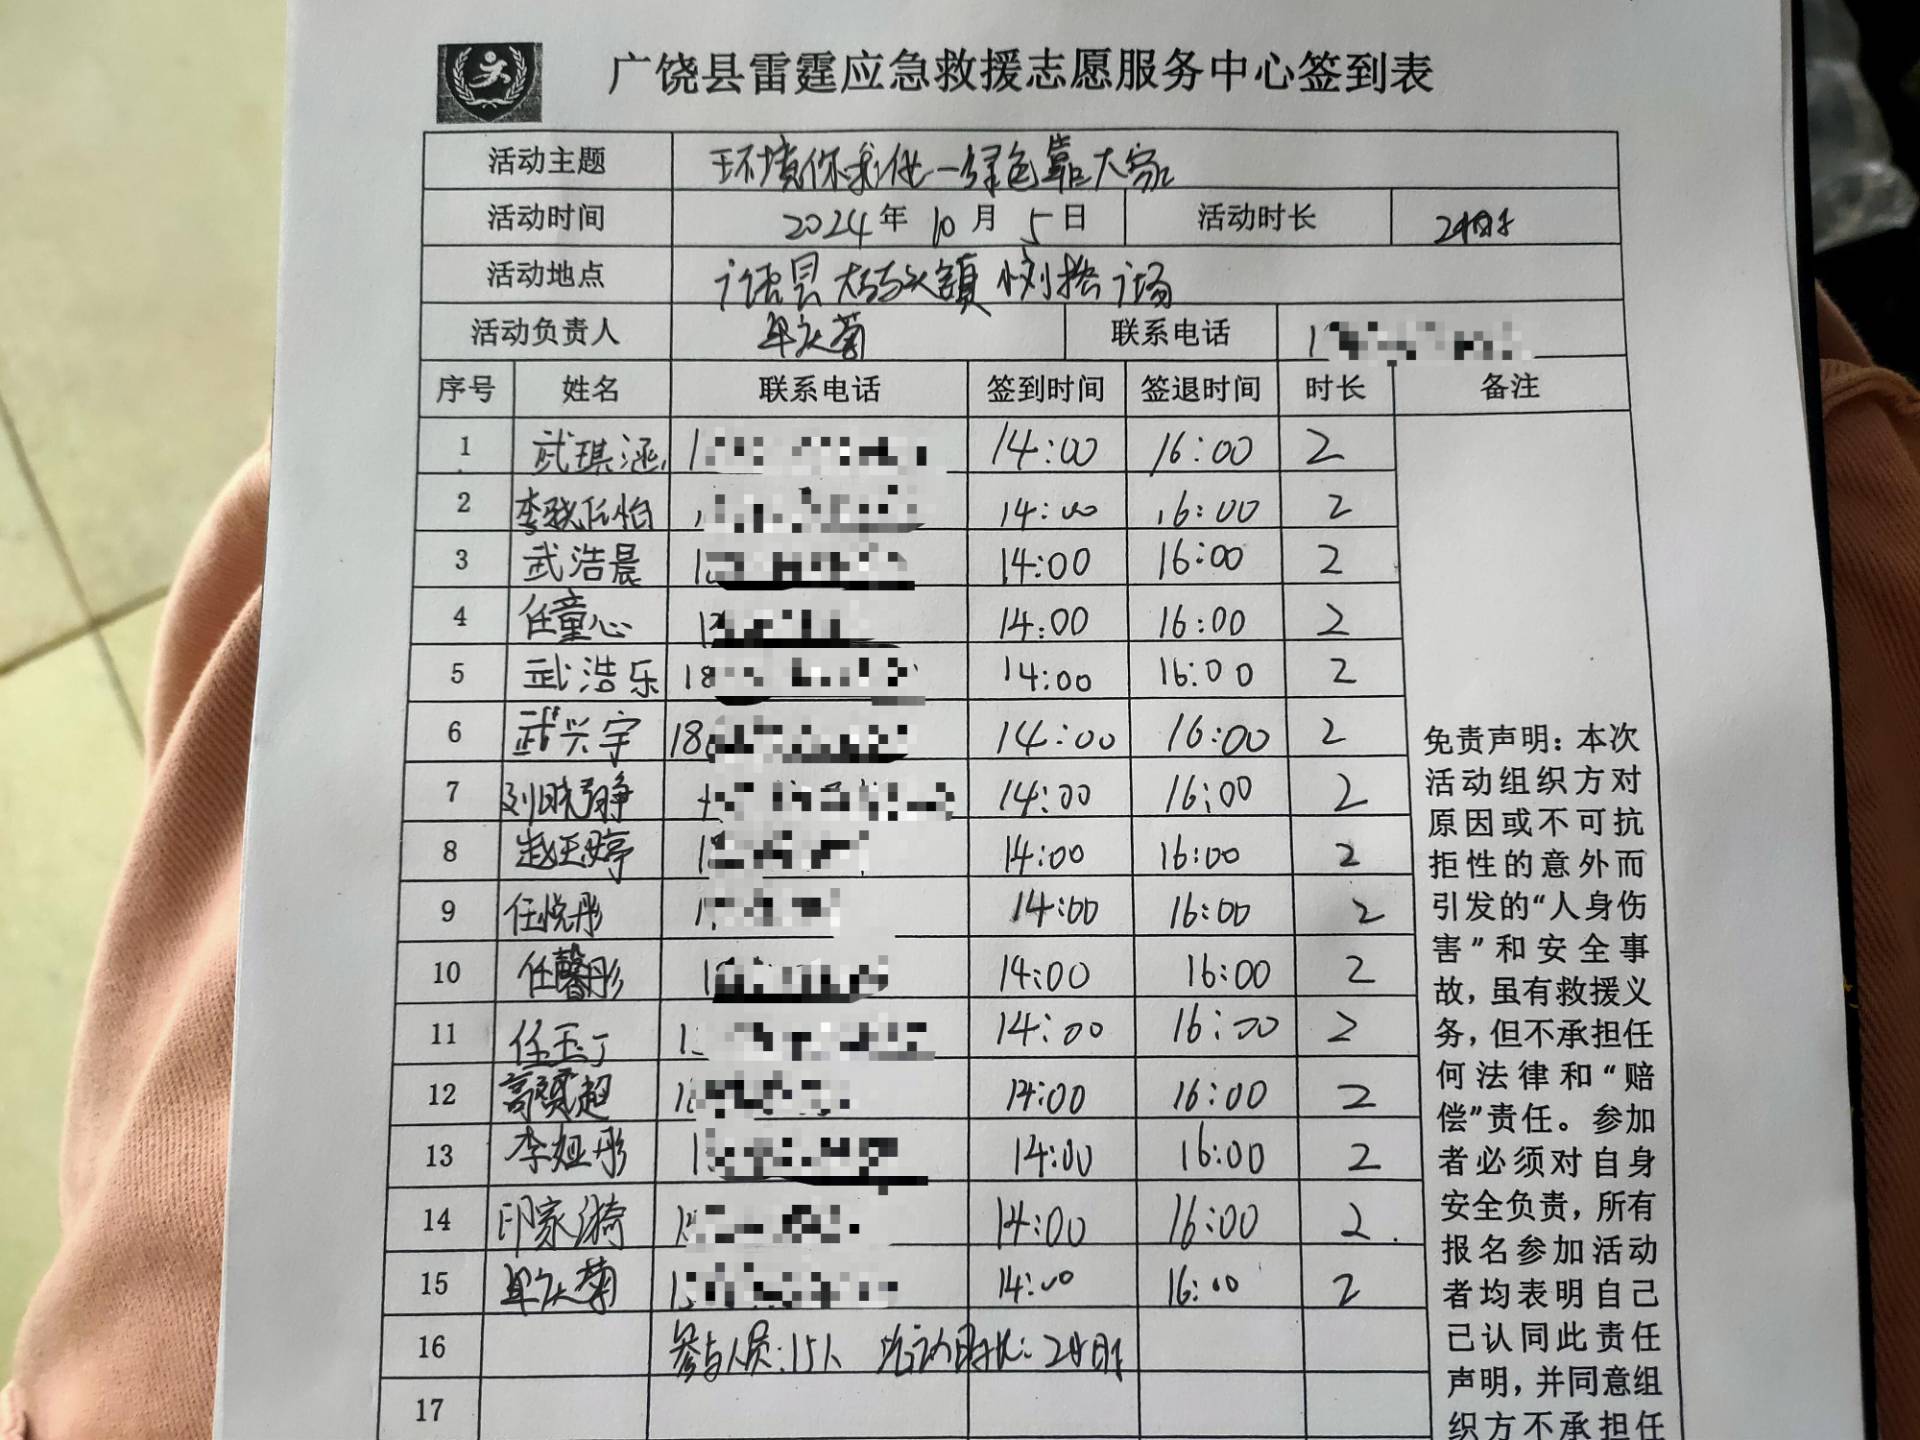 广饶县雷霆应急救援志愿服务中心签到表
活动主题 环境你我他一绿色靠大家
活动时间 2024年10月5日 活动时长 2小时
活动地点 广饶县大码头镇 广场
活动负责人 联系电话 1
序号 姓名 联系电话 签到时间 签退时间 时长 备注
1 武琪涵 1 14:00 16:00 2
2 14:00 16:00 2
3 武浩晨 1 14:00 16:00 2
4 任童心 1 14:00 16:00 2
5 武浩乐 18 14:00 16:00 2
6 武兴宇 18 14:00 16:00 2
7 14:00 16:00 2
8 赵玉婷 1 14:00 16:00 2
9 任悦彤 1 14:00 16:00 2
10 任馨彤 1 14:00 16:00 2
11 任玉丁 1 14:00 16:00 2
12 1 14:00 16:00 2
13 李娅彤 1 14:00 16:00 2
14 印家漪 1 14:00 16:00 2
15 1 14:00 16:00 2
16 参与人员:15人 活动时长:2小时
17
免责声明:本次
活动组织方对
原因或不可抗
拒性的意外而
引发的“人身伤
害”和安全事
故,虽有救援义
务,但不承担任
何法律和“赔
偿”责任。参加
者必须对自身
安全负责,所有
报名参加活动
者均表明自己
已认同此责任
声明,并同意组
织方不承担任